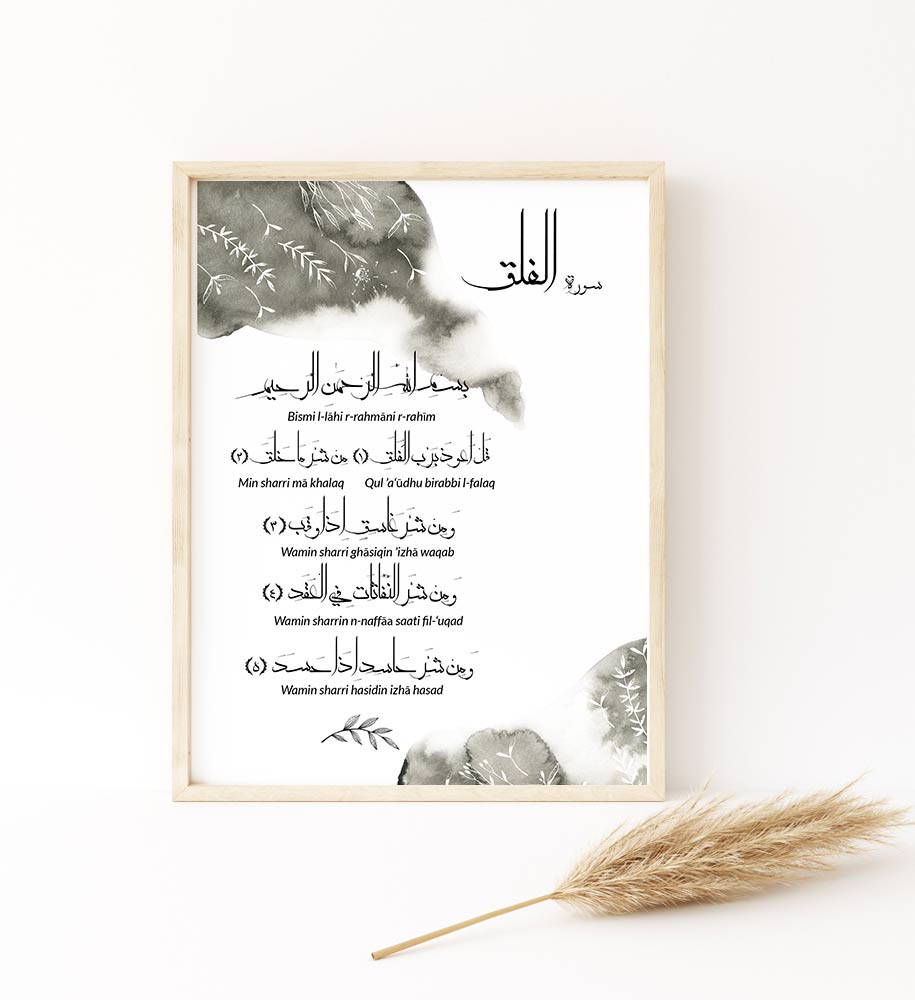 سورة الفلق
بِسْمِ اللهِ الرَّحْمَٰنِ الرَّحِيمِ
Bismi l-lāhi r-rahmāni r-rahīm
قُلْ أَعُوذُ بِرَبِّ الْفَلَقِ (١) مِن شَرِّ مَا خَلَقَ (٢)
Min sharri mā khalaq Qul 'a'ūdhu birabbi l-falaq
وَمِن شَرِّ غَاسِقٍ إِذَا وَقَبَ (٣)
Wamin sharri ghāsiqin 'izhā waqab
وَمِن شَرِّ النَّفَّاثَاتِ فِي الْعُقَدِ (٤)
Wamin sharrin n-naffāa saati fil-'uqad
وَمِن شَرِّ حَاسِدٍ إِذَا حَسَدَ (٥)
Wamin sharri hasidin izhā hasad